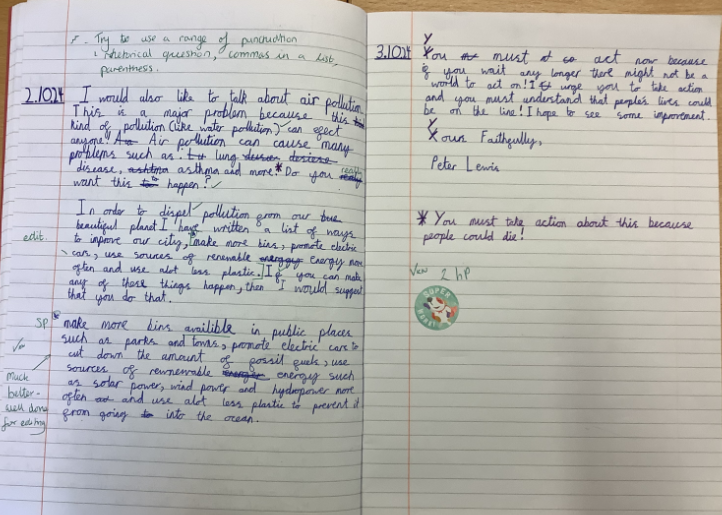 Try to use a range of punctuation
: rhetorical question, commas in a list,
parenthesis.
2.1024
I would also like to talk about air pollution.
This is a major problem because this
kind of pollution (like water pollution) can efect
anyone! Air pollution can cause many
problems such as: lung
disease, asthma and more.* Do you really
want this to happen?
In order to dispel pollution from our
beautiful planet I have written a list of ways
edit.
to improve our city, [make more bins, promote electric
cars, use sources of renewable energy more
often and use alot less plastic.] If you can make
any of these things happen, then I would suggest
that you do that.
SP
*make more bins availible in public places
such as parks and towns, promote electric cars to
cut down the amount of fossil fuels, use
sources of rewnewable energy such
as solar power, wind power and hydropower more
often and use alot less plastic to prevent it
from going into the ocean.
Much
better -
well done
for editing
3.1024
You must act now because
if you wait any longer there might not be a
world to act on! I urge you to take action
and you must understand that people's lives could
be on the line! I hope to see some improvement.
Y
Yours Faithfully,
Peter Lewis
* You must take action about this because
people could die!
2 hP
SUPER